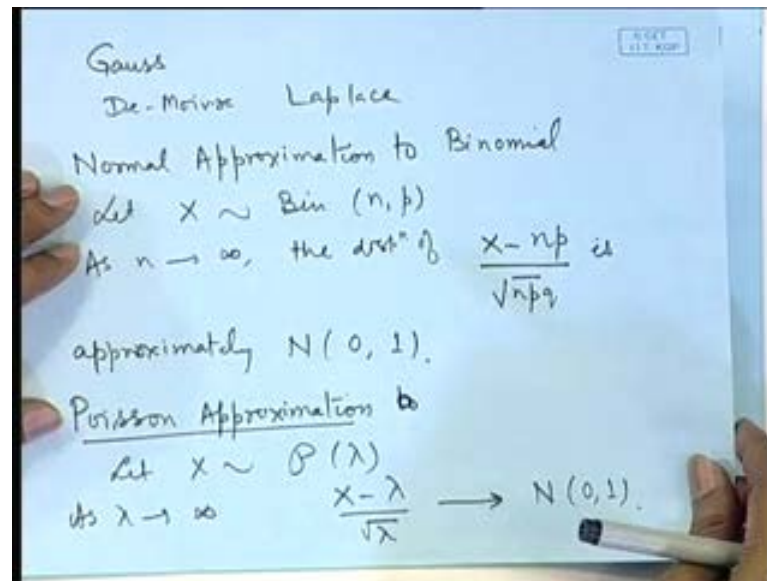 Gauss
De-Moivre Laplace
Normal Approximation to Binomial
Let X ~ Bin (n, p)
As n → ∞, the distⁿ of (X - np)/√npq is
approximately N(0, 1).
Poisson Approximation to
Let X ~ P(λ)
As λ → ∞ (X - λ)/√λ → N(0,1).